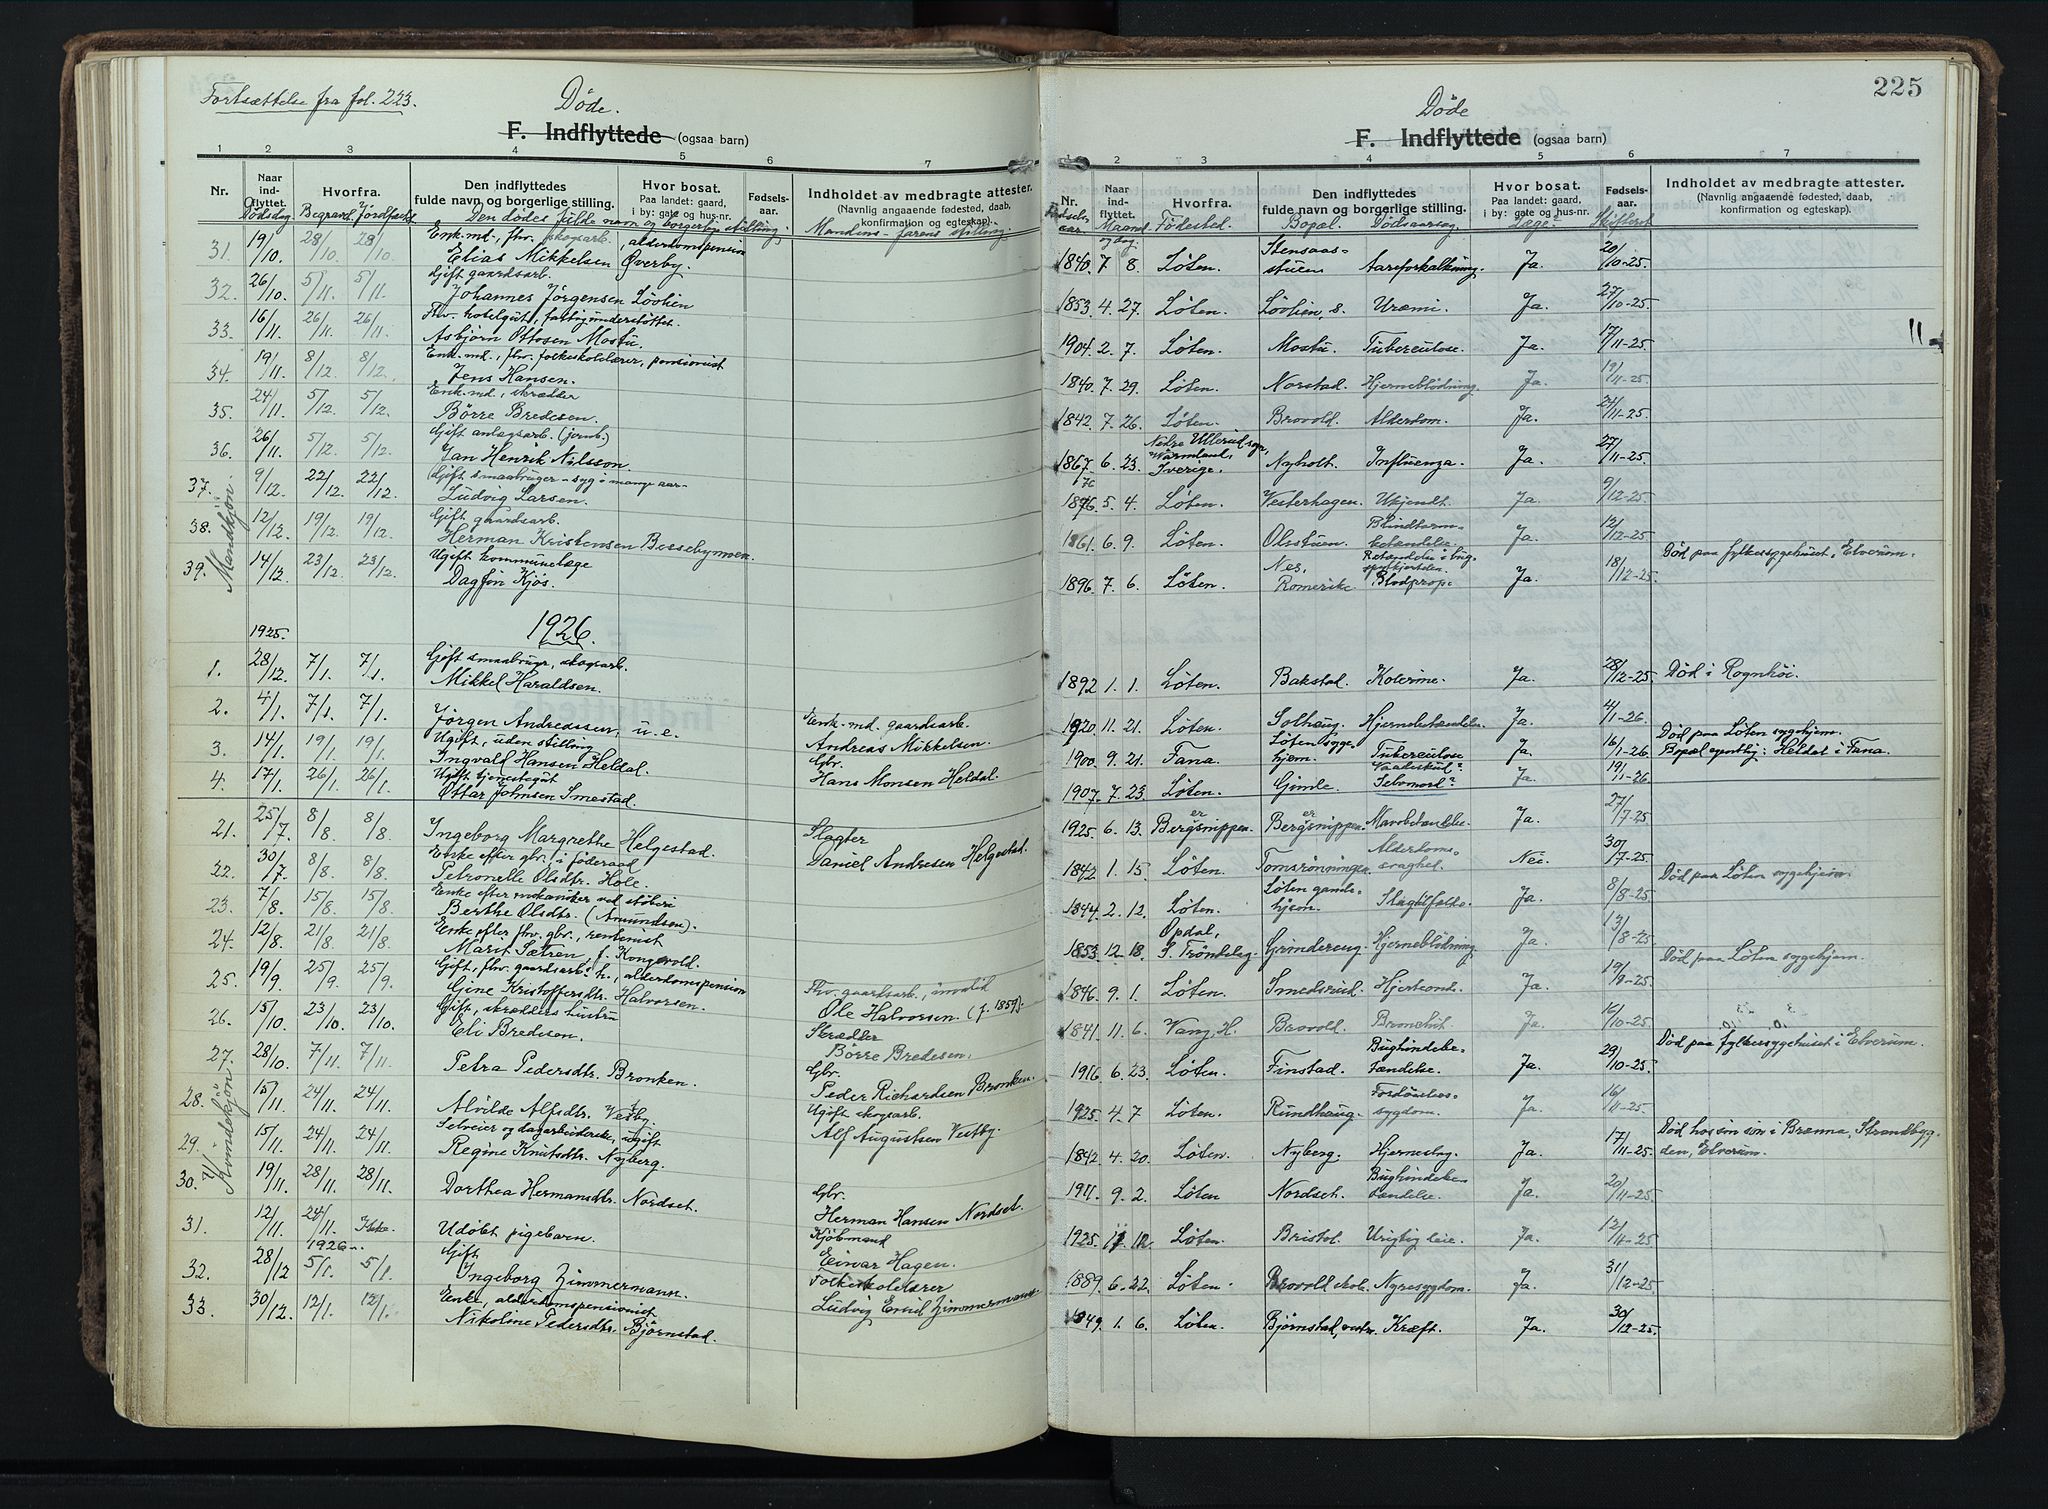 Fortsættelse fra fol. 223.
Døde.
F. Indflyttede (ogsaa barn)
1 2 3 4 5 6 7
Nr. Naar ind- flyttet. Hvorfra. Den indflyttedes fulde navn og borgerlige stilling. Hvor bosat. Paa landet: gaard, i by: gate og hus-nr. Fødsels- aar. Indholdet av medbragte attester. (Navnlig angaaende fødested, daab, konfirmation og egteskap).
Dødsdag Begravd. Jordfæstet Den dødes fulde navn og borgerlige stilling. Mandens - farens stilling.
Mandkjøn.
31. 19/10. 28/10. 28/10. Enk.md., fhv. skogsarb., alderdomspension
Elias Mikkelsen Øverby.
32. 26/10. 5/11. 5/11. Gift gaardsarb.
Johannes Jørgensen Løvlien
33. 16/11. 26/11. 26/11. Fhv. hotelgut, fattigunderstøttet.
Asbjørn Ottosen Mostu.
34. 19/11. 8/12. 8/12. Enk.md., fhv. folkeskolelærer, pensionist
Jens Hansen.
35. 24/11. 5/12. 5/12. Enk.md., skrædder
Børre Bredesen.
36. 26/11. 5/12. 5/12. Gift anlægsarb. (jernb.)
Jan Henrik Nilsson.
37. 9/12. 22/12. 22/12. Gift smaabruger - syg i mange aar -
Ludvig Larsen.
38. 12/12. 19/12. 19/12. Gift gaardsarb.
Herman Kristensen Bessebymoen.
39. 14/12. 23/12. 23/12. Ugift kommunelæge
Dagfin Kjøs.
1925. 1926.
1. 28/12. 7/1. 7/1. Gift smaabruger, skogsarb.
Mikkel Haraldsen.
2. 4/1. 7/1. 7/1. Jørgen Andreassen, u.e. Enk.md. gaardsarb.
Andreas Mikkelsen.
3. 14/1. 19/1. 19/1. Ugift, uden stilling
Ingvald Hansen Heldal. Gbr.
Hans Monsen Heldal.
4. 17/1. 26/1. 26/1. Ugift tjenestegut
Ottar Johnsen Smestad.
Kvindekjøn
21. 25/7. 8/8. 8/8. Ingeborg Margrethe Helgestad. Slagter
Daniel Andresen Helgestad.
22. 30/7. 8/8. 8/8. Enke efter gbr. i føderaad
Petronelle Olsdtr. Hole.
23. 7/8. 15/8. 15/8. Enke efter mekaniker ved støberi
Berthe Olsdtr. (Amundsen).
24. 12/8. 21/8. 21/8. Enke efter fhv. gbr., rentenist
Marit Sætren, f. Kongsvold.
25. 19/9. 25/9. 25/9. Gift, fhv. gaardsarb. h., alderdomspension
Gine Kristoffersdtr. Halvorsen. Fhv. gaardsarb., invalid
Ole Halvorsen (f. 1857).
26. 15/10. 23/10. 23/10. Gift, skrædders hustru
Eli Bredesen. Skrædder
Børre Bredesen.
27. 28/10. 7/11. 7/11. Petra Pedersdtr. Bronken. Gbr.
Peder Richardsen Bronken.
28. 15/11. 24/11. 24/11. Alvilde Alfsdtr. Vestby. Ugift skogsarb.
Alf Augustsen Vestby.
29. 15/11. 24/11. 24/11. Selveier og dagarbeiderske, ugift
Regine Knutsdtr. Nyberg.
30. 19/11. 28/11. 28/11. Dorthea Hermansdtr. Nordset. Gbr.
Herman Hansen Nordset.
31. 12/11. 24/11. Ikke. Udøbt pigebarn. Kjøbmand
Einar Hagen.
1926
32. 28/12 5/1. 5/1. Gift
Ingeborg Zimmermann. Folkeskolelærer
Ludvig Emil Zimmermann.
33. 30/12. 12/1. 12/1. Enke, alderdomspensionist
Nikoline Pedersdtr. Bjørnstad.
225
Døde
F. Indflyttede (ogsaa barn)
1 2 3 4 5 6 7
Naar ind- flyttet. Hvorfra. Den indflyttedes fulde navn og borgerlige stilling. Hvor bosat. Paa landet: gaard, i by: gate og hus-nr. Fødsels- aar. Indholdet av medbragte attester. (Navnlig angaaende fødested, daab, konfirmation og egteskap).
Fødsels- aar. Maaned og dag. Fødested. Bopæl. Dødsaarsag. Læge. Skifteret
1840. 7 8. Løten. Stensaas- stuen Aareforkalkning. Ja. 20/10-25.
1853. 4. 27. Løten. Løvlien, s. Uræmi. Ja. 27/10-25.
1904. 2. 7. Løten. Mostu. Tuberculose. Ja. 17/11-25. 11
1840. 7. 29. Løten. Norstad. Hjerneblødning. Ja. 19/11-25.
1842. 7. 26. Løten. Brovold. Alderdom. Ja. 24/11-25.
1867. 6. 23. Nedre Ullerud sogn, Wärmland, Sverige. Nyholt. Influenza. Ja. 27/11-25.
1876. 5. 4. Løten. Vesterhagen. Ukjendt. Ja. 9/12-25.
1861. 6. 9. Løten. Olsstuen. Blindtarm- betændelse. Ja. 12/12-25.
1896. 7. 6. Løten. Nes, Romerike Betændelse i bug- spytkjertelen. Blodprop. Ja. 18/12-25. Død paa fylkessygehuset, Elverum.
1892 1. 1. Løten. Bakstad. Kolerine. Ja. 28/12-25. Død i Rognhøi.
1920. 11. 21. Løten. Solhaug. Hjernebetændelse. Ja. 4/1-26.
1900. 9. 21. Fana. Løten syge- hjem. Tuberculose Ja. 16/1-26 Død paa Løten sygehjem.
Bopæl egentlig: Heldal i Fana.
1907. 7. 23. Løten. Gimle. Vaadeskud? Selvmord? Ja. 19/1-26
1925. 6. 13. Bergsnippen. Bergsnippen. Mavebetændelse. Ja. 27/7-25.
1842. 1. 15. Løten. Tomsrønningen Alderdoms- svaghed. Nei. 30/7-25.
Død paa Løten sygehjem.
1844. 2. 12. Løten. Løten gamle- hjem. Slagtilfælde. Ja. 8/8-25.
1853. 12. 18. Opdal, S. Trøndelag. Grindereng. Hjerneblødning. Ja. 13/8-25
Død paa Løten sygehjem.
1846. 9. 1. Løten. Smedsrud. Hjerteonde. Ja. 19/9-25
1841. 11. 6. Vang, H. Brovold. Bronchit. Ja. 16/10-25.
Død paa fylkessygehuset i Elverum.
1916. 6. 23. Løten. Finstad. Bughindebe- tændelse. Ja. 29/10-25.
1925. 4. 7. Løten. Rundhaug. Fordøielses- sygdom. Ja. 16/11-25.
1842. 4. 20. Løten. Nyberg. Hjerneslag. Ja. 17/11-25. Død hos sin søn i Brænna, Strandbyg- den, Elverum.
1911. 9. 2. Løten Nordset. Bughindebe- tændelse. Ja. 20/11-25
1925. 11. 12. Løten. Bristol. Urigtig leie. Ja. 12/11-25.
1889. 6. 22. Løten. Brovold skole. Nyresygdom. Ja. 31/12-25.
1849. 1. 6. Løten. Bjørnstad, vestre. Kræft. Ja. 30/12-25.